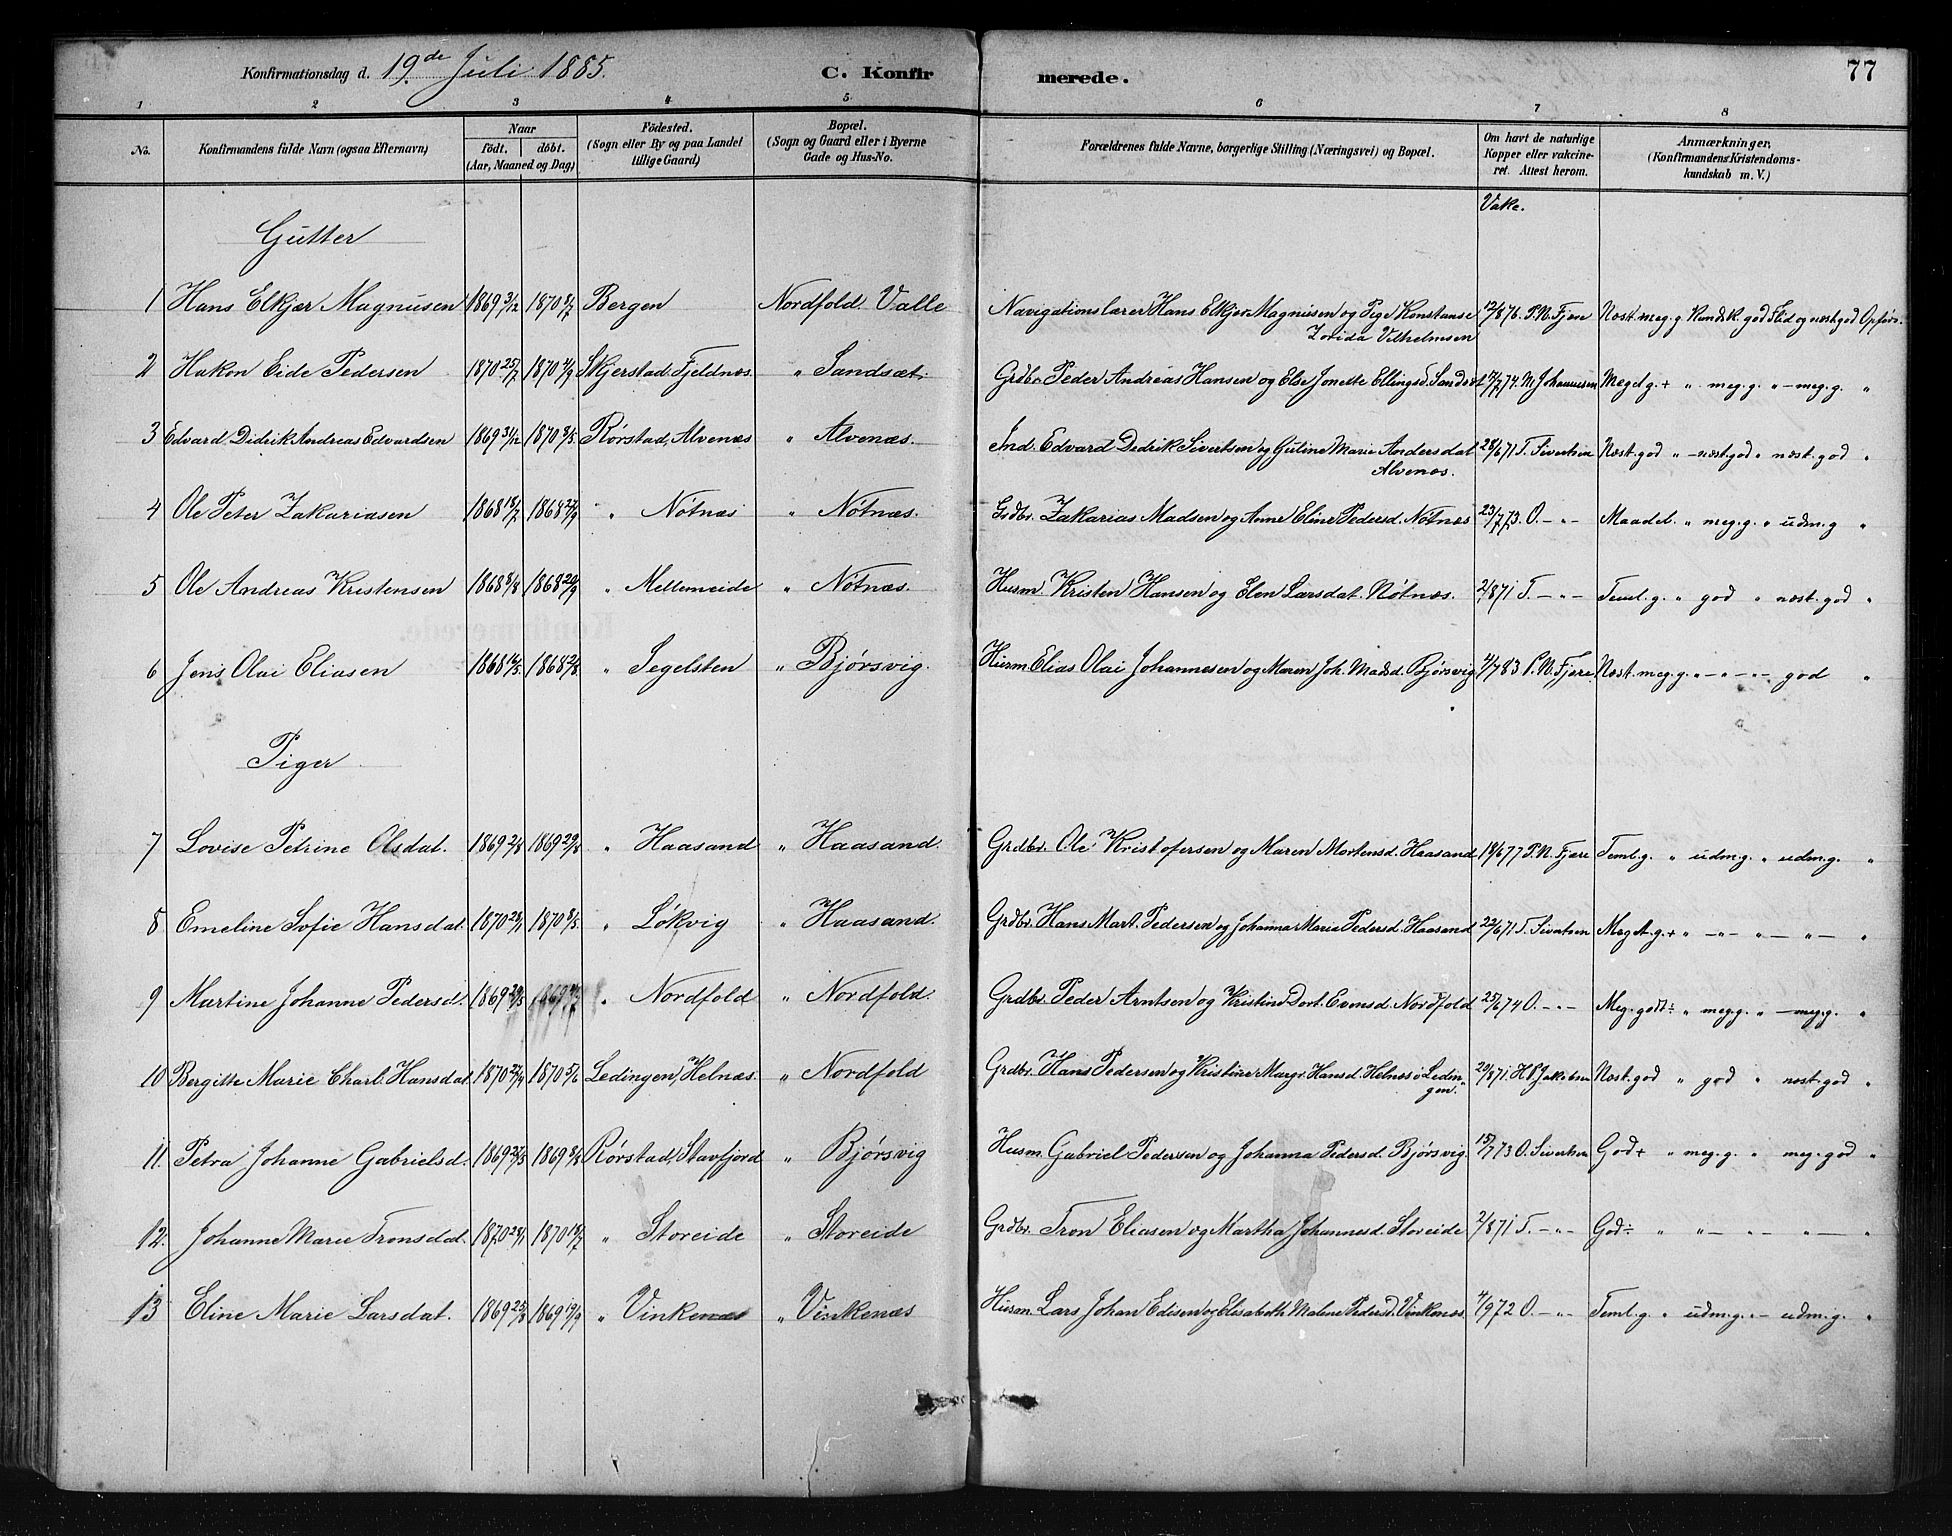 Konfirmationsdag d. 19de Juli 1885. C. Konfirmerede. 77
1 2 3 4 5 6 7 8
No. Konfirmandens fulde Navn (ogsaa Efternavn) Naar født. døbt. (Aar, Maaned og Dag) Fødested. (Sogn eller By og paa Landet tillige Gaard) Bopæl. (Sogn og Gaard eller i Byerne Gade og Hus-No. Forældrenes fulde Navne, borgerlige Stilling (Næringsvei) og Bopæl. Om havt de naturlige Kopper eller vakcineret. Attest herom. Anmærkninger, (Konfirmandens Kristendomskundskab m. V.)
Vakc.
Gutter
1 Hans Elkjær Magnusen 1869 3/12 1870 8/7 Bergen Nordfold Valle Navigationslærer Hans Elkjær Magnusen og Pige Konstanse Zorida Vilhelmsen 12/8 76. P.N. Fjære Næst. meg. g. Kundsk. god Flid og næst. god Opførs.
2 Hakon Eide Pedersen 1870 25/7 1870 4/9 Skjerstad, Fjeldnæs " Sandsæt. Grdbr. Peder Andreas Hansen og Else Jonette Ellingsd. Sandsæt 17/7 74. N. Johannesen Meget g. + " meg. g. " - meg. g. "
3 Edvard Didrik Andreas Edvardsen 1869 31/12 1870 8/5 Rørstad, Alvenæs " Alvenæs. Ind. Edvard Dedrik Sivertsen og Gutine Marie Andersdat Alvenæs. 28/6 71 T. Sivertsen Næst. god " - næst. god " næst. god "
4 Ole Peter Zakariasen 1868 18/7 1868 27/9 " Nøtnæs " Nøtnæs. Grdbr. Zakarias Madsen og Anne Eline Pedersd. Nøtnæs 23/7 73. O. - " - Maadel. " meg. g. " udm. g "
5 Ole Andreas Kristensen 1868 8/8 1868 20/9 " Mellemeide " Nøtnæs. Husm Kristen Hansen og Elen Larsdat. Nøtnæs. 2/8 71 T. - " - Teml. g. " god " næst. god "
6 Jens Olai Eliasen 1868 16/5 1868 2/8 " Segelsten " Bjørsvig. Husm. Elias Olai Johannesen og Maren Joh. Madsd. Bjørsvig 4/7 83 P.N. Fjære. Næst. meg. g. " - " - " - god "
Piger
7 Lovise Petrine Olsdat. 1869 2/8 1869 29/8 " Haasand " Haasand. Grdbr. Ole Kristofersen og Maren Mortensd. Haasand 18/6 77 P.N. Fjære Teml. g. " udm. g. " udm. g. "
8 Emeline Sofie Hansdat 1870 28/1 1870 8/5 " Løkvig " Haasand. Grdbr. Hans Mart. Pedersen og Johanna Maria Pedersd. Haasand 22/6 71 T. Sivertsen Meget. g. + " - " - " - " - "
9 Martine Johanne Pedersd. 1869 1869 " Nordfold " Nordfold. Grdbr. Peder Arntsen og Kristine Dort. Evensd. Nordfold 25/6 74 O. - " - Meg. god ÷ " meg. g. " - meg. g. "
10 Bergitte Marie Charl. Hansdat 1870 27/4 1870 5/6 Lødingen, Helnæs. " Nordfold Grdbr. Hans Pedersen og Kristine Margr. Hansd. Helnæs i Lødingen. 20/8 71. H P Jakobsen Næst. god " god " næst. god "
11. Petra Johanne Gabrielsd. 1869 27/3 1869 8/5 Rørstad, Stavfjord " Bjørsvig Husm. Gabriel Pedersen og Johanna Pedersd. Bjørsvig 15/7 73 O. Sivertsen God + " meg. g. " meg. god "
12. Johanne Marie Tronsdat. 1870 28/1 1870 18/7 " Storeide " Storeide Grdbr. Tron Eliasen og Martha Johannesd. Storeide 2/8 71 T. - " - God ÷ " " - " - " - "
13 Eline Marie Larsdat. 1869 25/8 1869 19/9 " Vinkenæs " Vinkenæs Husm. Lars Johan Edisen og Elisabeth Malene Pedersd. Vinkenæs. 4/9 72 O. - " - Teml. g. " udm. g. " - udm. g. "